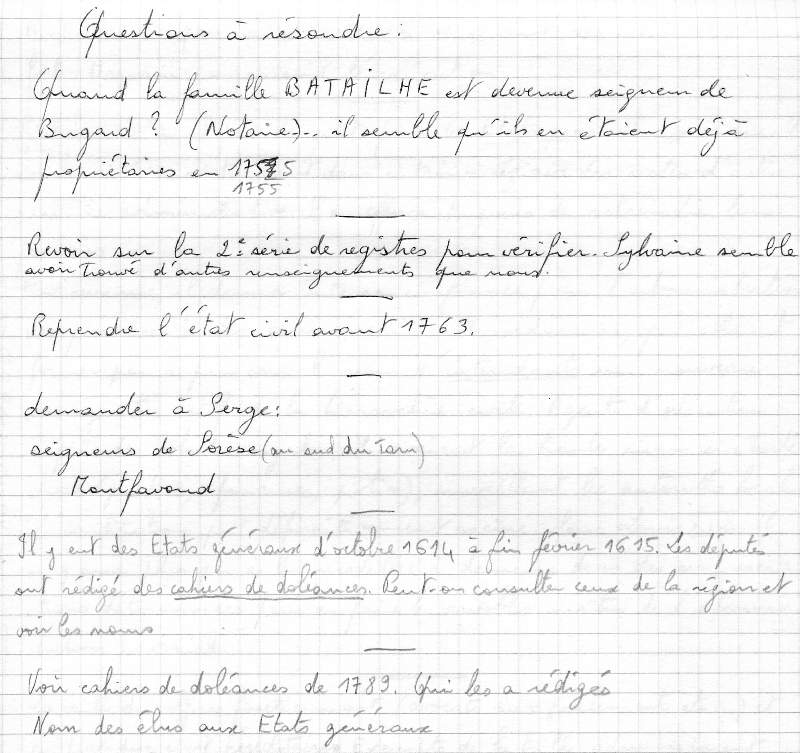 Questions à résoudre :
Quand la famille BATAILHE est devenue seigneur de
Bugard ? (Notaire)... il semble qu'ils en étaient déjà
propriétaires en 1755
1755
Revoir sur la 2e série de registres pour vérifier. Sylvaine semble
avoir trouvé d'autres renseignements que nous.
Reprendre l'état civil avant 1763.
demander à Serge :
seigneurs de Sorèse (au sud du Tarn)
Montfavond
Il y eut des Etats généraux d'octobre 1614 à fin février 1615. Les députés
ont rédigé des cahiers de doléances. Peut-on consulter ceux de la région et
voir les noms
Voir cahiers de doléances de 1789. Qui les a rédigés
Nom des élus aux Etats généraux